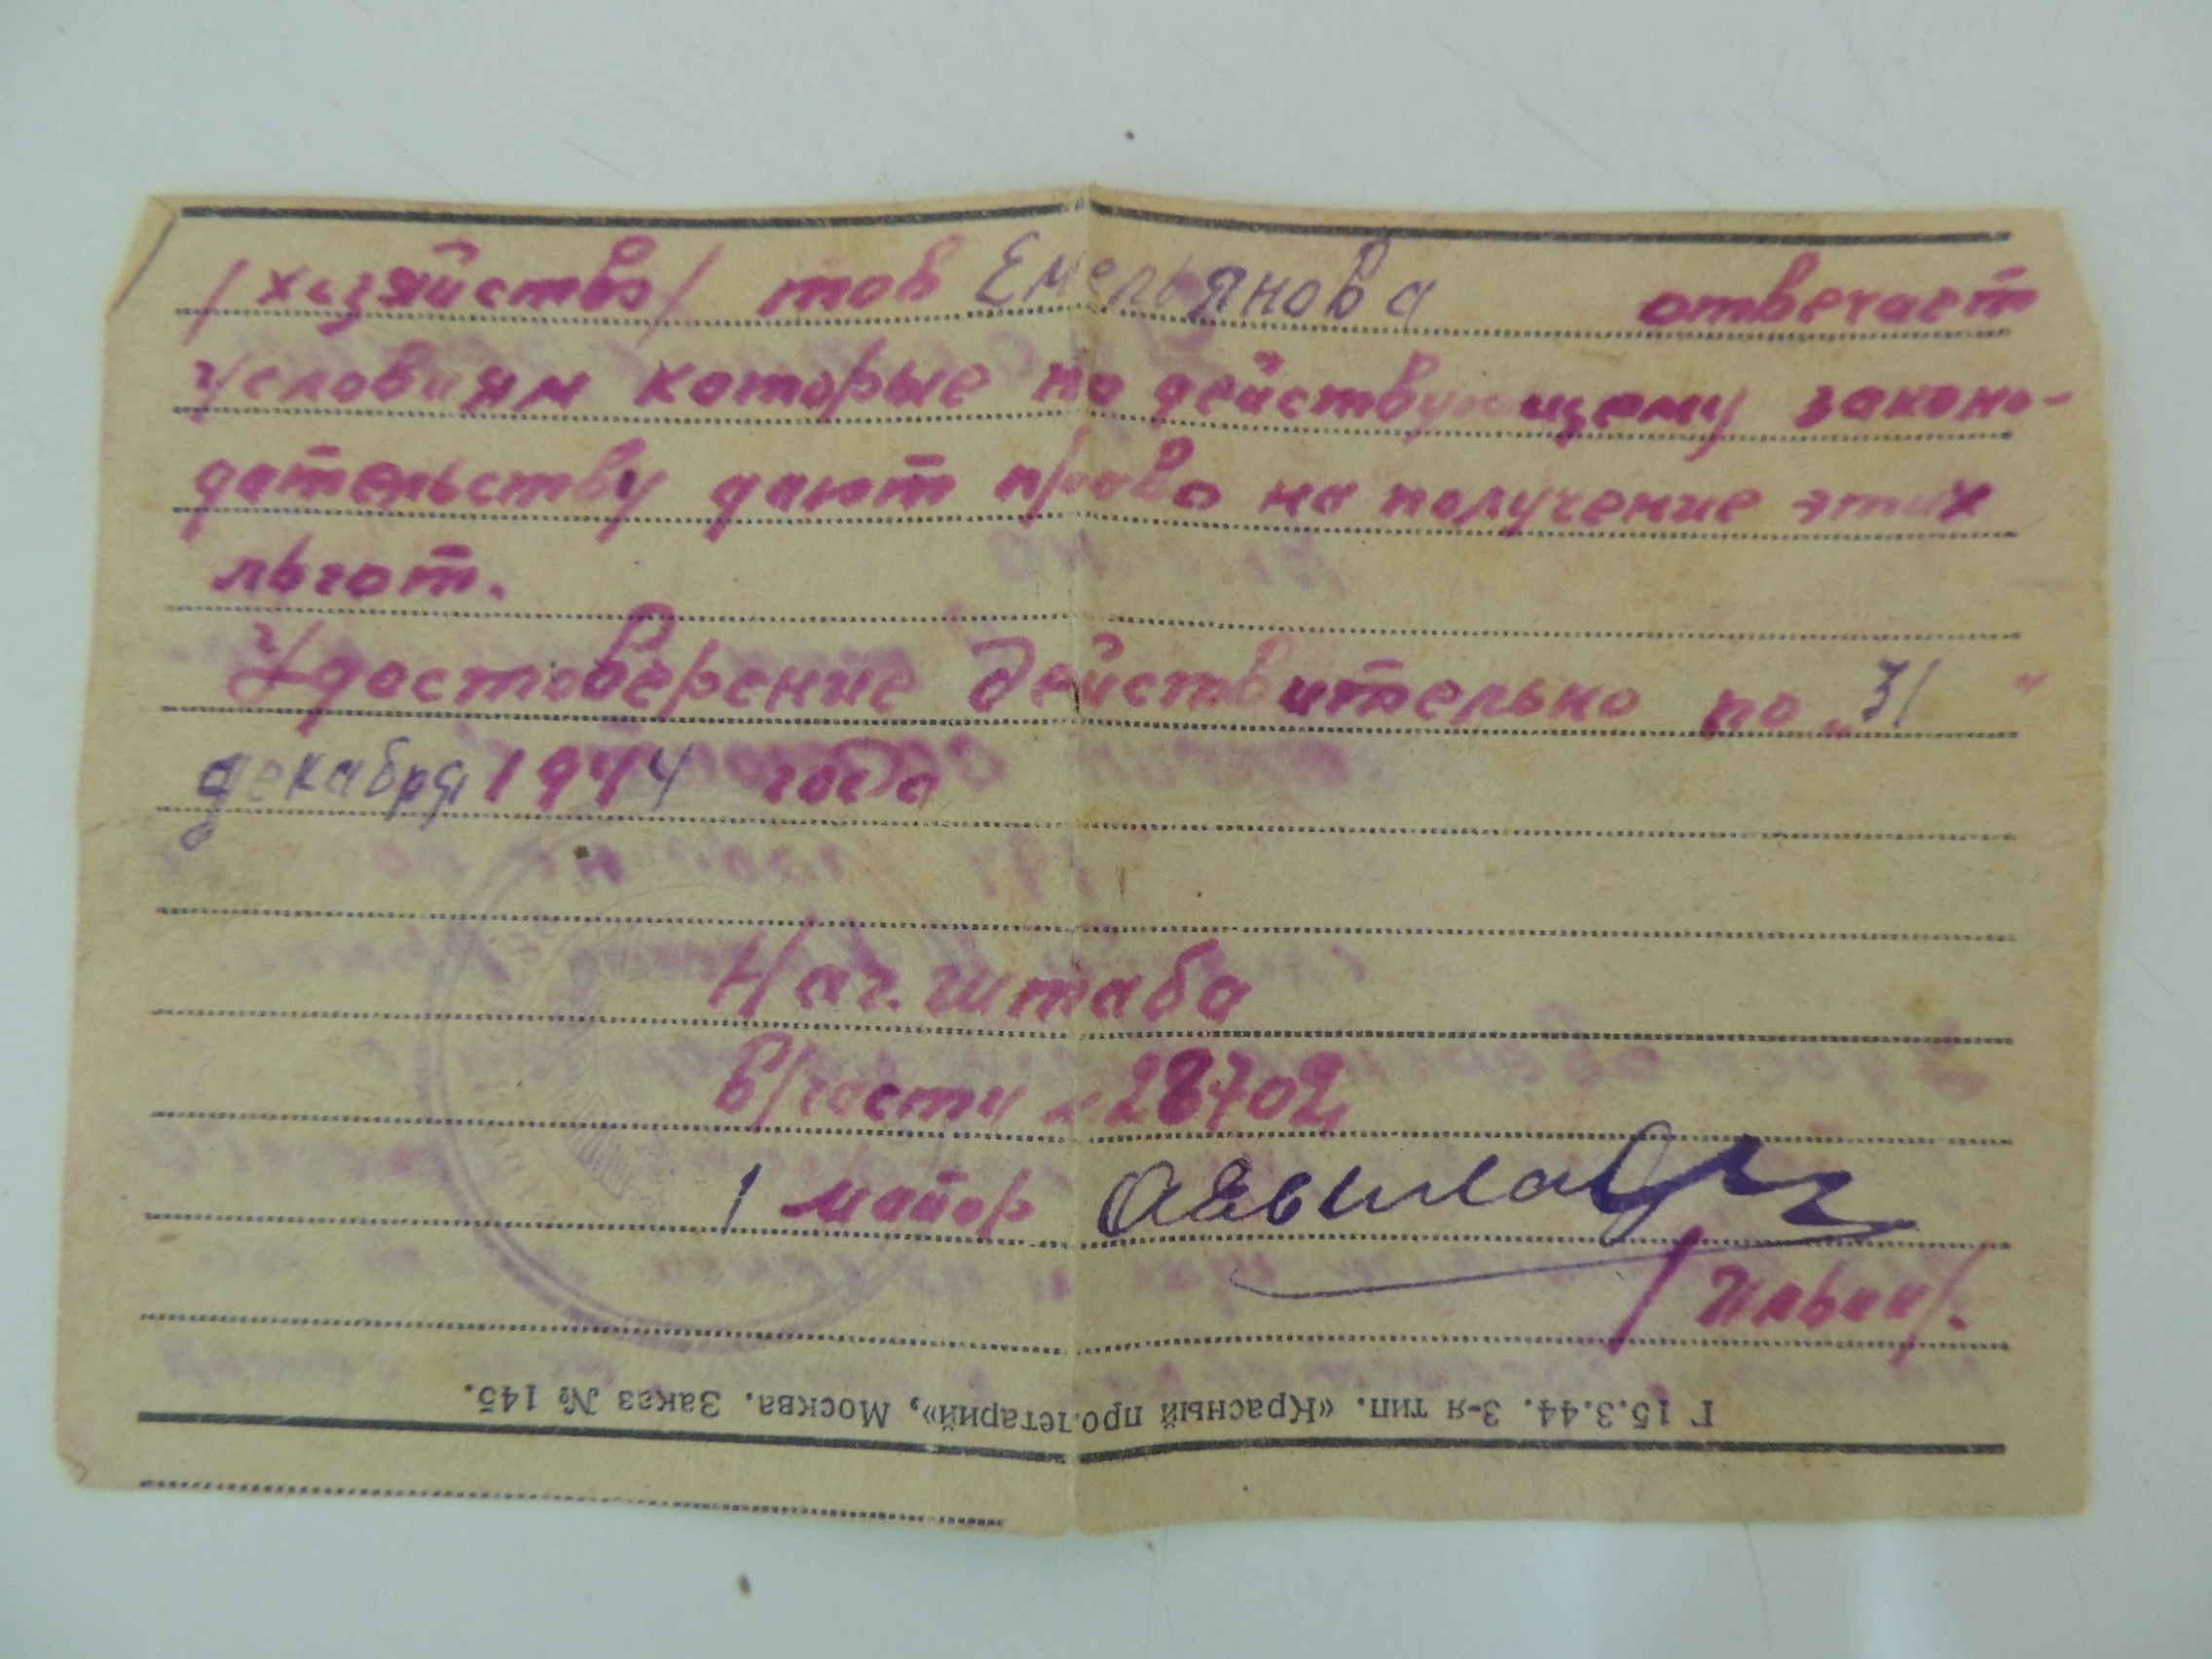 /хозяйство/ тов Емельянова отвечает
условиям которые по действующему законо-
дательству дают право на получение этих
льгот.
Удостоверение действительно по „31"
декабря 1944 года
Нач. штаба
в/части „28702
/ майор
/Ильин/.
Г 15.3.44. 3-я тип. «Красный пролетарий», Москва. Заказ № 145.